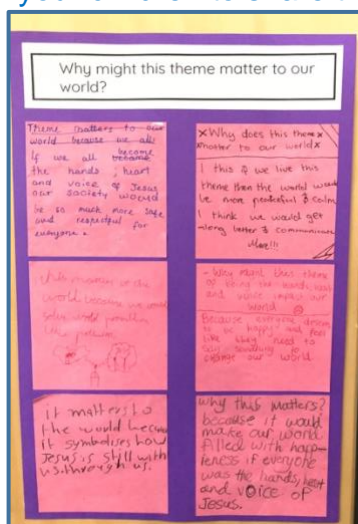 Why might this theme matter to our
world?
Theme matters to our
world because we all
If we all become
the hands, heart
and voice of Jesus
our society would
be so much more safe
and respectful for
everyone.
x Why does this theme x
matter to our world x
I think if we live this
theme then the world would
be more peaceful & calm
I think we would get
along better & communicate
More!!!
this matters to the
world because we could
solve world
like
- Why might this theme
of being the hands, heart
and voice impact our
world
Because everyone deserves
to be happy and feel
like they need to
say something to
change our world.
it matters to
the world because
it symbolises how
Jesus is still with
us. through us.
why this matters?
because it would
make our world
filled with happ-
ieness if everyone
was the hands, heart
and voice of
Jesus.